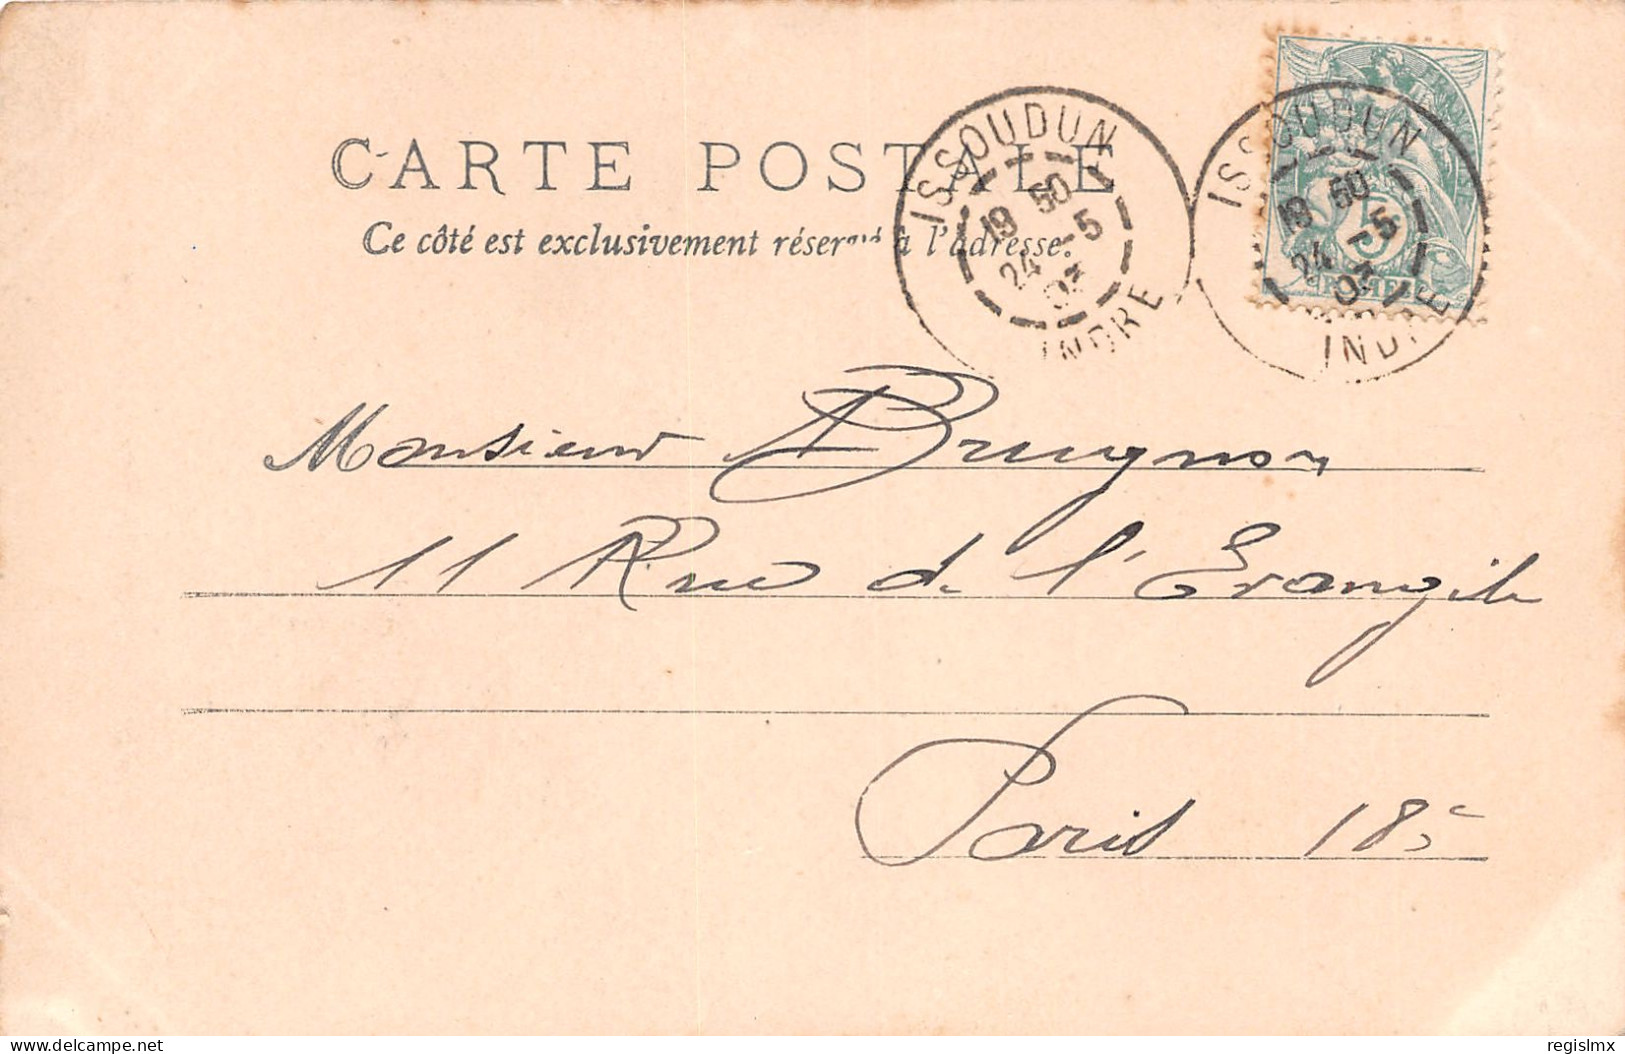 CARTE POSTALE
Ce côté est exclusivement réservé à l'adresse.
ISSOUDUN
19 50
24 -5
03
INDRE
ISSOUDUN
19 50
24 -5
03
INDRE
5
Monsieur A Brugnon
11 Rue de l'Evangile
Paris 18e
delcampe.net
regislmx